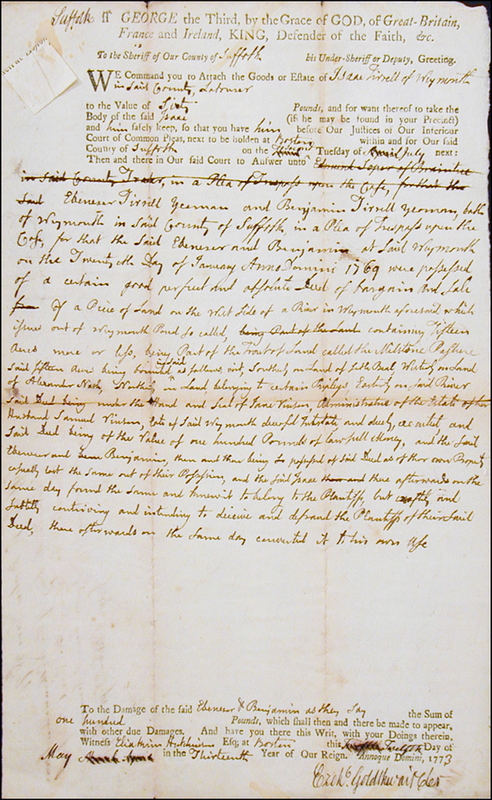 Suffolk ss GEORGE the Third, by the Grace of GOD, of Great-Britain,
France and Ireland, KING, Defender of the Faith, &c.
To the Sheriff of Our County of Suffolk his Under-Sheriff or Deputy, Greeting.
WE Command you to Attach the Goods or Estate of Isaac Tirrell of Weymouth
in Said County, Labourer
to the Value of Sixty Pounds, and for want thereof to take the
Body of the said Isaac (if he may be found in your Precinct)
and him safely keep, so that you have him before Our Justices of Our Inferiour
Court of Common Pleas, next to be holden at Boston within and for Our said
County of Suffolk on the Tuesday of July next:
Then and there in Our said Court to Answer unto Edmund Soper of Braintree
in said County in a Plea of Trespass upon the Case, for that the
Said Ebenezer Tirrell Yeoman and Benjamin Tirrell Yeoman, both
of Weymouth in Said County of Suffolk, in a Plea of Trespass upon the
Case, for that the Said Ebenezer and Benjamin at Said Weymouth
on the Twentieth Day of January Anno Domini 1769 were possessed
of a certain good perfect and absolute Deed of bargain and Sale
for Of a Piece of Land on the West Side of a River in Weymouth aforesaid which
issues out of Weymouth Pond so called, being Part of the Land containing fifteen
Acres more or less, being Part of the Tract of Land called the Milstone Pasture
Said fifteen Acres being bounded as follows viz, Southerly on Land of Westerly on Land
of Alexander Nash, Northerly in Land belonging to certain Easterly on Said River
Said Deed being under the Hand and Seal of Jane Vinson, Administratrix of the Estate of her
Husband Samuel Vinson, late of Said Weymouth deceased Intestate and duly executed, and
Said Deed being of the Value of one hundred Pounds of lawfull Money, and the Said
Ebenezer and Benjamin, then and there being so possessed of said Deed as of their own Property
casually lost the Same out of their Possession, and the Said Isaac there afterwards on the
same day found the Same and knew it to belong to the Plaintiffs, but craftily and
Subtilly contriving and intending to deceive and defraud the Plaintiffs of their Said
Deed, there afterwards on the Same day converted it to his own Use
To the Damage of the said Ebenezer & Benjamin as they Say the Sum of
one hundred Pounds, which shall then and there be made to appear,
with other due Damages. And have you there this Writ, with your Doings therein.
Witness Eliakim Hutchinson Esq; at Boston this Twelfth Day of
May in the Thirteenth Year of Our Reign. Annoque Domini, 1773
Ezekl. Goldthwait Cler